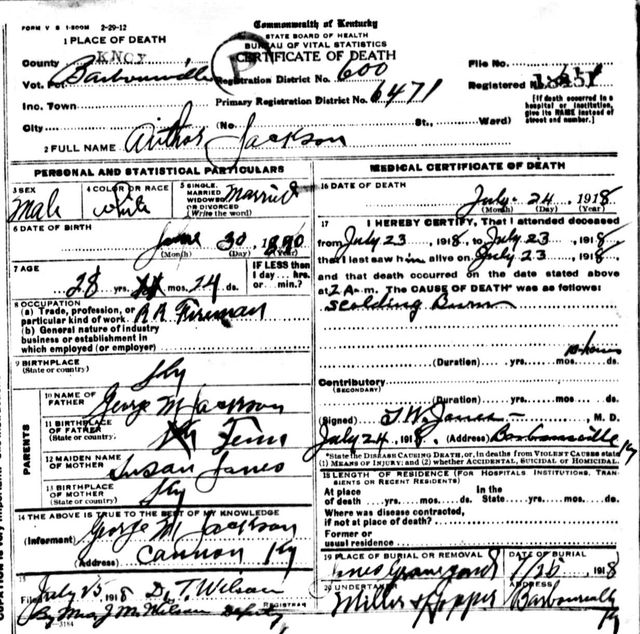 FORM V S 1-500M 2-29-12
Commonwealth of Kentucky
STATE BOARD OF HEALTH
BUREAU OF VITAL STATISTICS
CERTIFICATE OF DEATH
1 PLACE OF DEATH
County KNOX
Vot. Pct. Barbourville
Registration District No. 600
File No.
Registered No.
Inc. Town
Primary Registration District No. 6471
[If death occurred in a hospital or institution, give its NAME instead of street and number.]
City (No. St., Ward)
2 FULL NAME Arthor Jackson
PERSONAL AND STATISTICAL PARTICULARS
3 SEX
Male
4 COLOR OR RACE
White
5 SINGLE, MARRIED WIDOWED OR DIVORCED (Write the word)
Married
6 DATE OF BIRTH
June 30, 1890
(Month) (Day) (Year)
7 AGE
28 yrs. mos. 24 ds.
IF LESS then 1 day... hrs. or min.?
8 OCCUPATION
(a) Trade, profession, or particular kind of work RR Fireman
(b) General nature of industry
business or establishment in
which employed (or employer)
9 BIRTHPLACE
(State or country)
Ky
PARENTS
10 NAME OF FATHER
George M Jackson
11 BIRTHPLACE OF FATHER
(State or country)
Tenn
12 MAIDEN NAME OF MOTHER
Susan Jones
13 BIRTHPLACE OF MOTHER
(State or country)
Ky
14 THE ABOVE IS TRUE TO THE BEST OF MY KNOWLEDGE
(Informant) George M. Jackson
(Address) Cannon Ky
15
Filed July 25, 1918 D. T. Wilson
REGISTRAR
By Mrs J M Wilson Deputy
-3184
MEDICAL CERTIFICATE OF DEATH
16 DATE OF DEATH
July 24, 1918
(Month) (Day) (Year)
17 I HEREBY CERTIFY, That I attended deceased
from July 23, 1918, to July 23, 1918
that I last saw him alive on July 23, 1918
and that death occurred on the date stated above
at 2 A m. The CAUSE OF DEATH* was as follows:
Scolding Burn
hours
(Duration) yrs. mos. ds.
Contributory
(SECONDARY)
(Duration) yrs. mos. ds.
(Signed) T W Jones, M. D.
July 24, 1918. (Address) Barbourville Ky
*State the DISEASE CAUSING DEATH, or, in deaths from VIOLENT CAUSES state (1) MEANS OF INJURY; and (2) whether ACCIDENTAL, SUICIDAL or HOMICIDAL.
18 LENGTH OF RESIDENCE (FOR HOSPITALS INSTITUTIONS, TRANSIENTS OR RECENT RESIDENTS)
At place of death yrs. mos. ds. In the State yrs. mos. ds.
Where was disease contracted,
if not at place of death?
Former or
usual residence
19 PLACE OF BURIAL OR REMOVAL
Jones Graveyard
DATE OF BURIAL
7/25, 1918
20 UNDERTAKER
Miller & Hopper
ADDRESS
Barbourville Ky